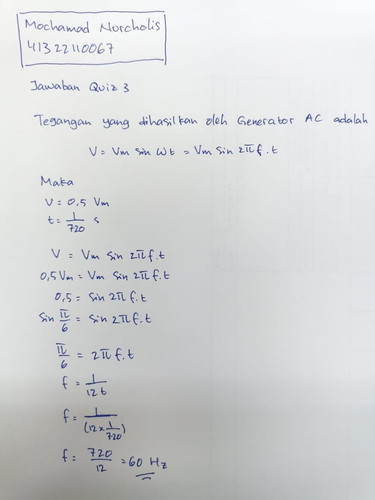 Mochamad Nurcholis
41322110067
Jawaban Quiz 3
Tegangan yang dihasilkan oleh Generator AC adalah
V = Vm sin ωt = Vm sin 2π f . t
Maka
V = 0,5 Vm
t = 1/720 s
V = Vm sin 2π f . t
0,5 Vm = Vm sin 2π f . t
0,5 = sin 2π f . t
sin π/6 = sin 2π f . t
π/6 = 2π f . t
f = 1/12t
f = 1/(12 x 1/720)
f = 720/12 = 60 Hz